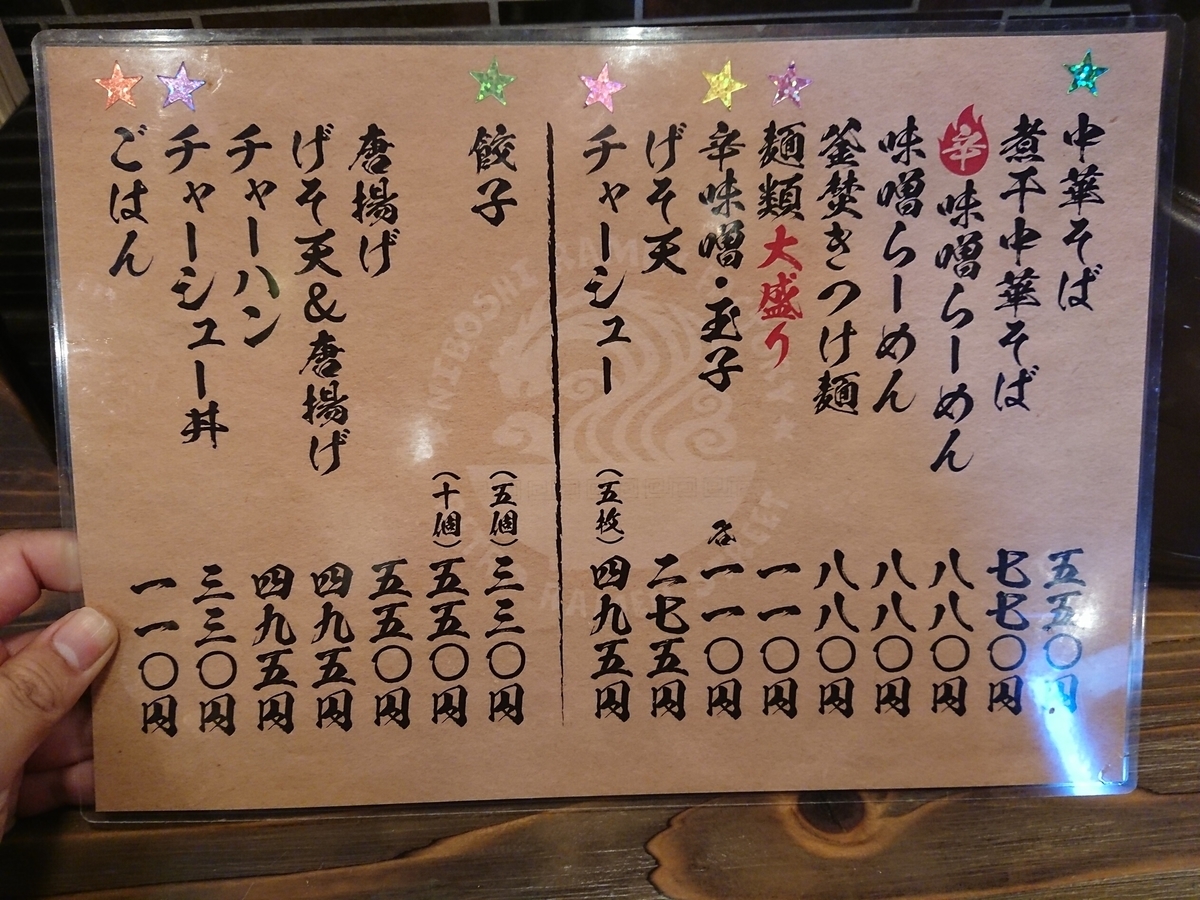 中華そば 五五〇円
煮干中華そば 七七〇円
辛味噌らーめん 八八〇円
味噌らーめん 八八〇円
釜焚きつけ麺 八八〇円
麺類大盛り 一一〇円
辛味噌・玉子 各一一〇円
げそ天 二七五円
チャーシュー (五枚) 四九五円
餃子 (五個) 三三〇円
(十個) 五五〇円
唐揚げ 五五〇円
げそ天&唐揚げ 四九五円
チャーハン 四九五円
チャーシュー丼 三三〇円
ごはん 一一〇円
NIBOSHI RAM